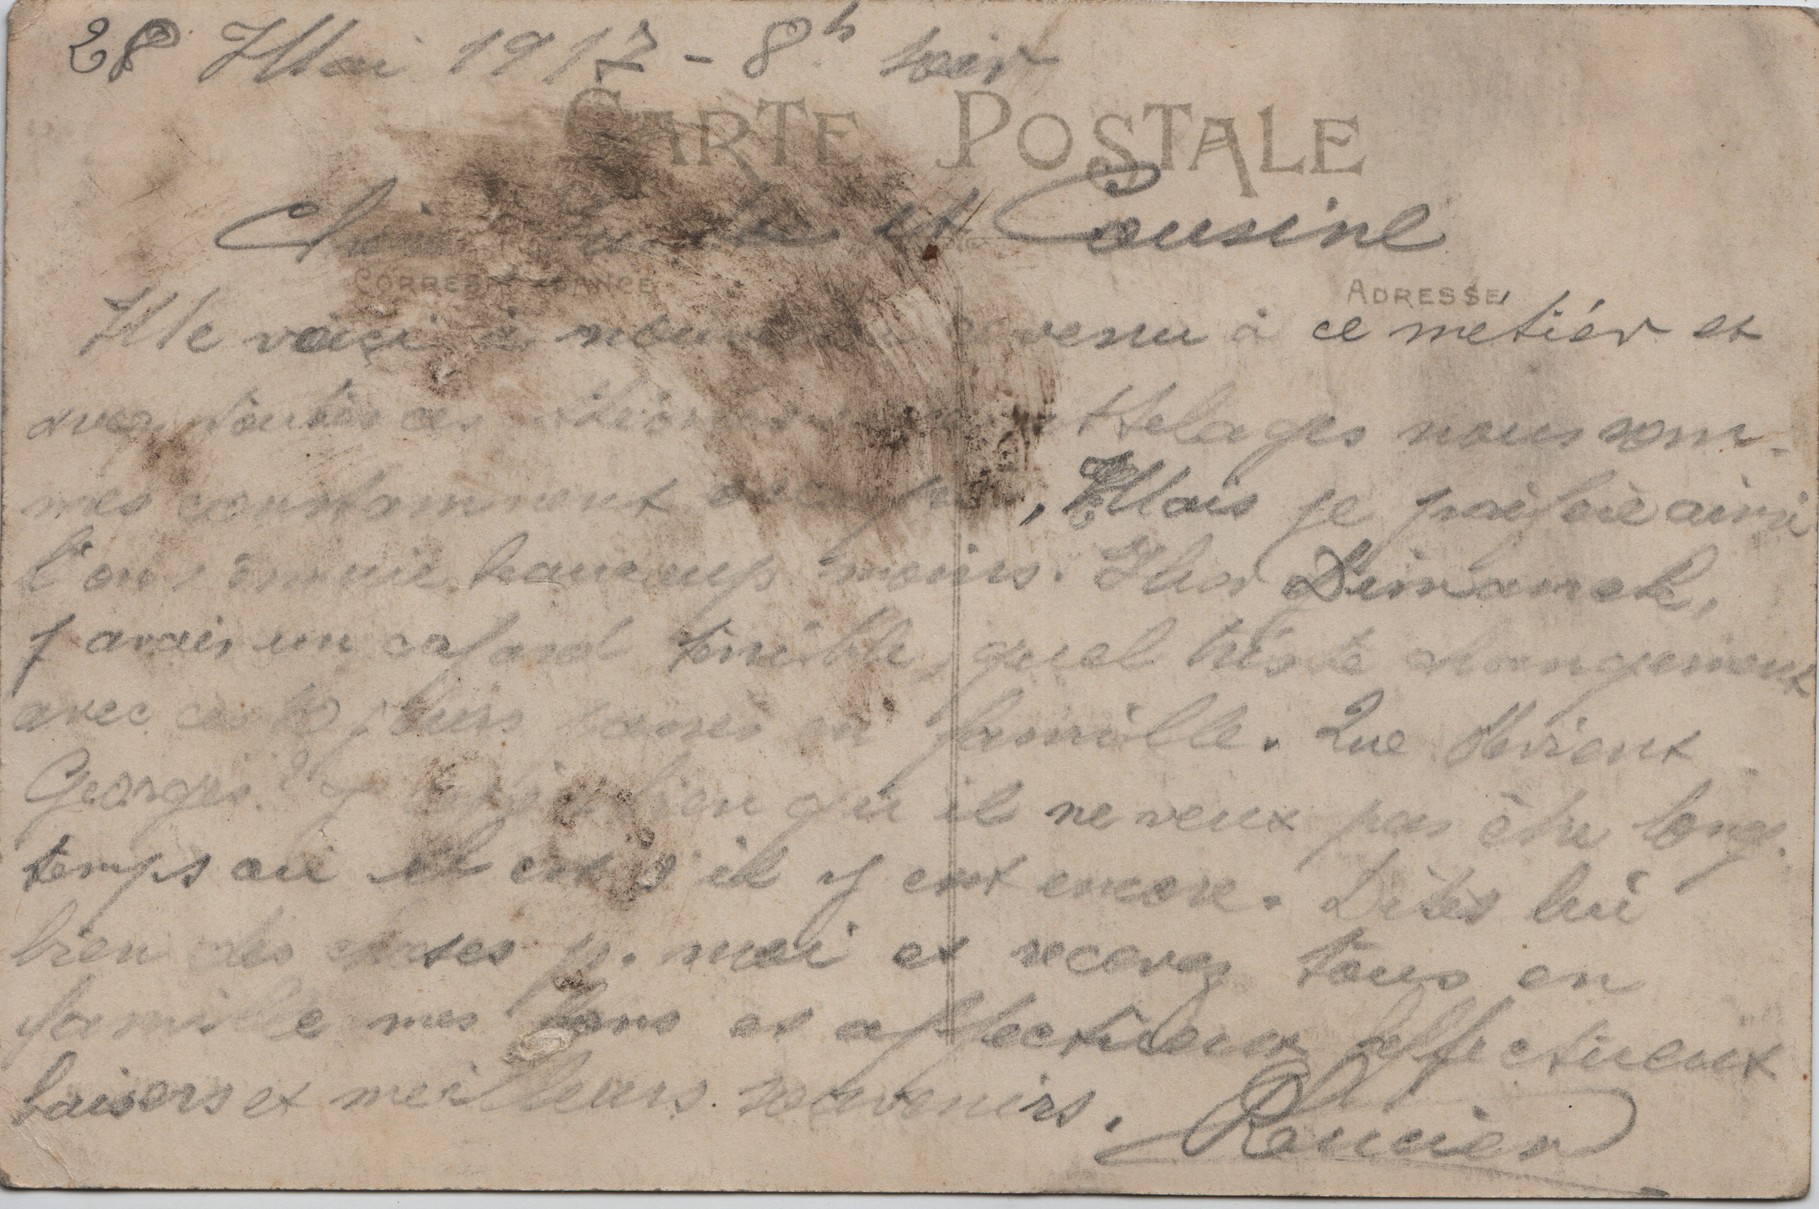 28 Mai 1917 - 8h soir
CARTE POSTALE
et Cousine
CORRESPONDANCE
ADRESSE
Me voici à nouveau revenu à ce metier et
avec toutes ces attelages nous som-
mes constamment occupés, Mais je préfère ainsi
l'on s'ennuie beaucoup moins. Hier Dimanche,
j'avais un cafard terrible, quel triste changement
avec ces 10 jours passés en famille. Que devient
Georges? bien qu'il ne veux pas être long-
temps ou il est s'il y est encore. Dites lui
bien des choses p. moi et recevez tous en
famille mes bons et affectueux affectueux
baisers et meilleurs souvenirs.